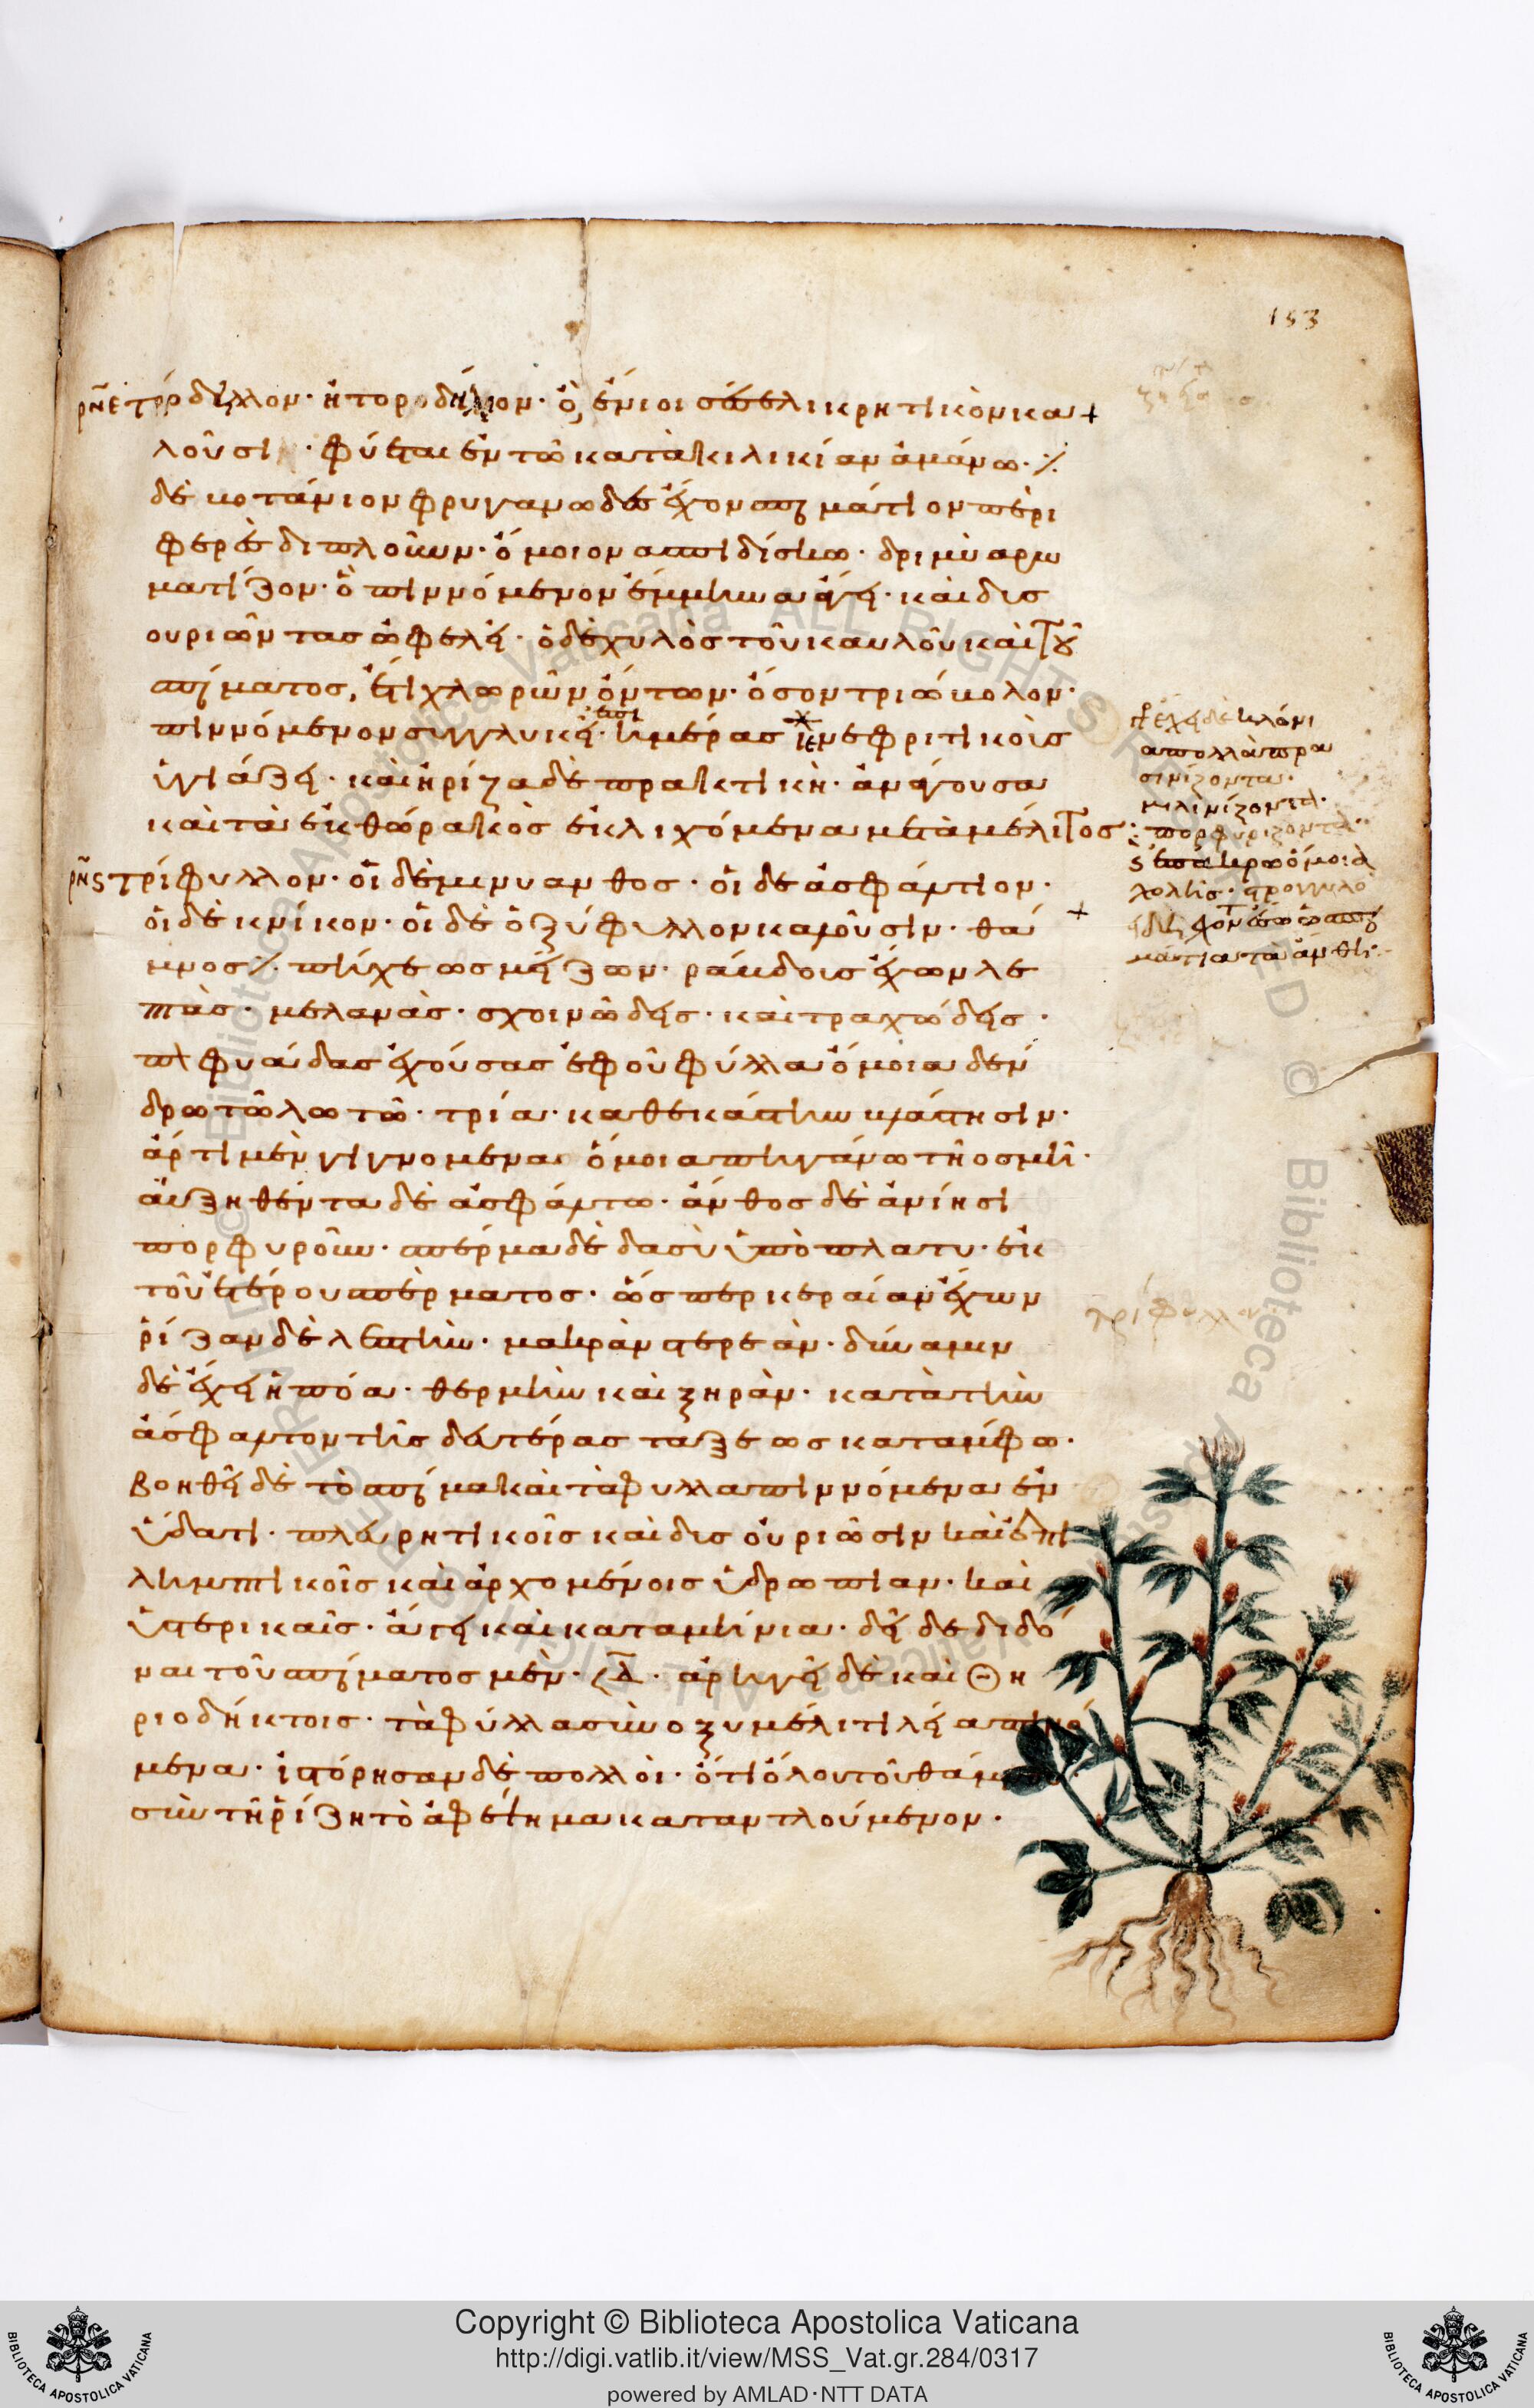 153
ρ̅ν̅ε τόρδυλλον· ἢ τορδήλιον· ὃ, ἔνιοι σέσελι κρητικὸν κα
λοῦσι· φύεται ἐν τῶ κατὰ κιλικίαν ἀμάνω·
δὲ βοτάνιον φρυγανῶδες ἔχον σπερμάτιον περι
φερὲς διπλοῦν· ὅμοιον ἀσπιδίσκω· δριμὺ αρω
ματίζον· ὃ πιννόμενον ἔμμηνα ἄγει· καὶ δυσ
ουριῶντας ὠφελεῖ· ὁ δὲ χυλὸς τοῦ καυλοῦ καὶ τοῦ
σπέρματος, ἔτι χλωρῶν ὄντων· ὅσον τριώβολον·
πιννόμενον σὺν γλυκεῖ· ἡμέρας ι νεφριτικοὺς
ὑγιάζει· καὶ ἡ ρίζα δὲ πρακτικὴ· ἀνάγουσα
καὶ τὰ ἐκ θώρακος ἐκλιχόμενα μετὰ μέλιτος
ρ̅ν̅ς τρίφυλλον· οἱ δὲ μινυανθος· οἱ δὲ ἀσφάλτιον·
οἱ δὲ κνίκον· οἱ δὲ ὀξύφυλλον καλοῦσιν· θά
μνος πήχεως μείζων· ράβδοις ἔχων λε
πτὰς· μελανὰς· σχοινώδεις· καὶ τραχώδεις·
φυάδας ἐχούσας ἐφ οὗ φύλλα ὅμοια δέν
δρω τῶ λωτῶ· τρία· καθ ἑκάστην βλάστησιν·
ἄρτι μὲν γιγνομένα ὅμοια πηγάνω τῆ οσμῆ·
ἀυξηθέντα δὲ ἀσφάλτω· άνθος δὲ ἀνίησι
πορφυροῦν· σπέρμα δὲ δασὺ ὑπόπλατυ· ἐκ
τοῦ ἑτέρου σπέρματος· ὥσπερ κεραίαν ἔχων
ῥίζαν δὲ λεπτὴν· μακρὰν στερεὰν· δύναμιν
δὲ ἔχει ἡ πόα· θερμὴν καὶ ξηρὰν· κατὰ τὴν
ἄσφαλτον τῆς δευτέρας τάξεως κατανύφω·
βοηθεῖ δὲ τὸ σπέρμα καὶ τὰ φυλλα πιννόμενα ἐν
ὕδατι· πλευρητικοῖς καὶ δισουριῶσιν καὶ ἐπι
λημπτικοῖς καὶ ἀρχομένοις ὑδρωπιαν· καὶ
ὑστερικαῖς· ἄγει καὶ καταμήνια· δεῖ δε διδό
ναι τοῦ σπέρματος μὲν· δ̅· ἀρήγει δὲ καὶ θη
ριοδήκτοις· τὰ φύλλα σὺν οξυμέλιτι λεῖα πινό
μενα· ἱστόρησαν δὲ πολλοὶ· ὅτι ὅλου τοῦ θάμνου
σὺν τῆ ῥίζη τὸ ἀφέψημα καταντλούμενον·
ἔχει δὲ κλόνι
α πολλὰ πρα
σινίζοντα·
πορφυρίζοντα
μάτια τὰ ἄνθη·
τρίφυλλον
Copyright © Biblioteca Apostolica Vaticana
http://digi.vatlib.it/view/MSS_Vat.gr.284/0317
powered by AMLAD·NTT DATA
BIBLIOTECA APOSTOLICA VATICANA
BIBLIOTECA APOSTOLICA VATICANA